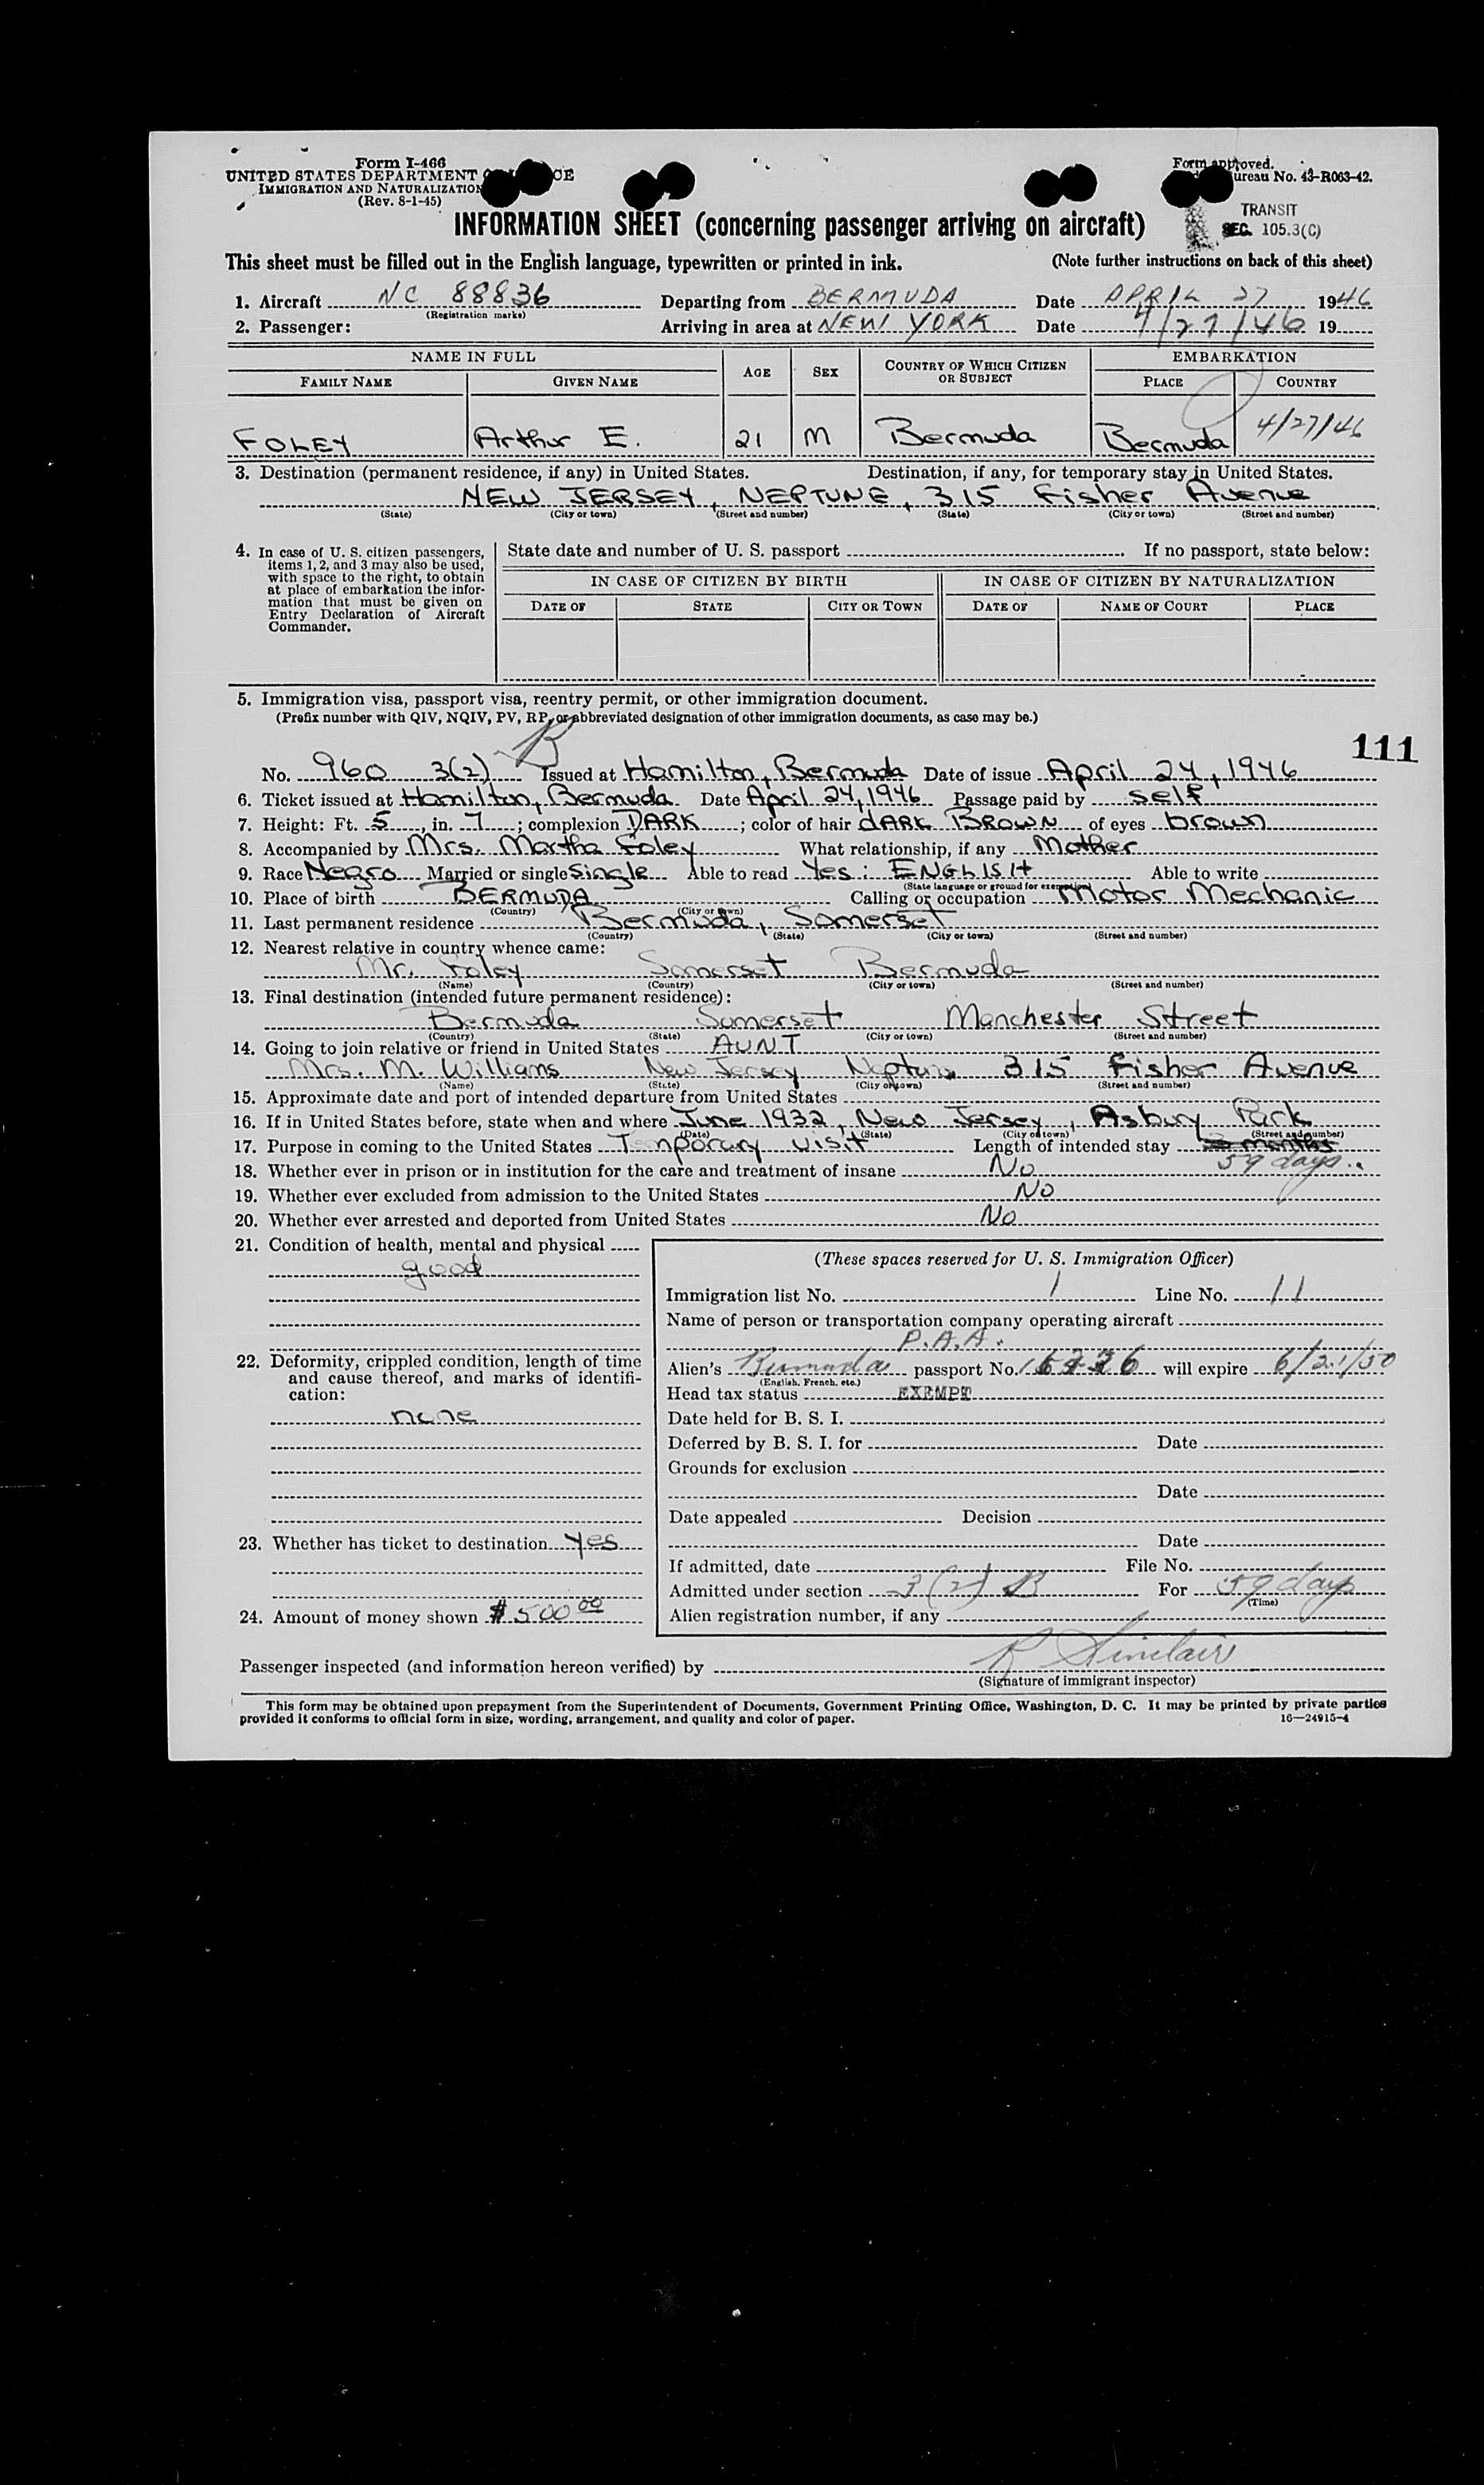 Form I-466
UNITED STATES DEPARTMENT
IMMIGRATION AND NATURALIZATION
(Rev. 8-1-45)
Form approved.
ureau No. 43-R063-42.
TRANSIT
SEC. 105.3(C)
INFORMATION SHEET (concerning passenger arriving on aircraft)
This sheet must be filled out in the English language, typewritten or printed in ink. (Note further instructions on back of this sheet)
1. Aircraft NC 88836 Departing from BERMUDA Date APRIL 27 1946
(Registration marks)
2. Passenger: Arriving in area at NEW YORK Date 4/27/46 19
NAME IN FULL AGE SEX COUNTRY OF WHICH CITIZEN OR SUBJECT EMBARKATION
FAMILY NAME GIVEN NAME PLACE COUNTRY
FOLEY Arthur E. 21 M Bermuda Bermuda 4/27/46
3. Destination (permanent residence, if any) in United States. Destination, if any, for temporary stay in United States.
NEW JERSEY, NEPTUNE, 315 Fisher Avenue
(State) (City or town) (Street and number) (State) (City or town) (Street and number)
4. In case of U. S. citizen passengers, items 1, 2, and 3 may also be used, with space to the right, to obtain at place of embarkation the information that must be given on Entry Declaration of Aircraft Commander.
State date and number of U. S. passport . If no passport, state below:
IN CASE OF CITIZEN BY BIRTH IN CASE OF CITIZEN BY NATURALIZATION
DATE OF STATE CITY OR TOWN DATE OF NAME OF COURT PLACE
5. Immigration visa, passport visa, reentry permit, or other immigration document.
(Prefix number with QIV, NQIV, PV, RP, or abbreviated designation of other immigration documents, as case may be.)
111
No. 960 3(2) B Issued at Hamilton, Bermuda Date of issue April 24, 1946
6. Ticket issued at Hamilton, Bermuda Date April 24, 1946 Passage paid by self
7. Height: Ft. 5, in. 7; complexion DARK; color of hair dARK BROWN of eyes brown
8. Accompanied by Mrs. Martha Foley What relationship, if any Mother
9. Race Negro Married or single Single Able to read Yes: ENGLISH Able to write
(State language or ground for exemption)
10. Place of birth BERMUDA Calling or occupation Motor Mechanic
(Country) (City or town)
11. Last permanent residence Bermuda, Somerset
(Country) (State) (City or town) (Street and number)
12. Nearest relative in country whence came:
Mr. Foley Somerset Bermuda
(Name) (Country) (City or town) (Street and number)
13. Final destination (intended future permanent residence):
Bermuda Somerset Manchester Street
(Country) (State) (City or town) (Street and number)
14. Going to join relative or friend in United States AUNT
Mrs. M. Williams New Jersey Neptune 315 Fisher Avenue
(Name) (State) (City or town) (Street and number)
15. Approximate date and port of intended departure from United States
16. If in United States before, state when and where June 1932, New Jersey, Asbury Park
(Date) (State) (City or town) (Street and number)
17. Purpose in coming to the United States Temporary visit Length of intended stay 3 months
59 days
18. Whether ever in prison or in institution for the care and treatment of insane No
19. Whether ever excluded from admission to the United States No
20. Whether ever arrested and deported from United States No
21. Condition of health, mental and physical
good
22. Deformity, crippled condition, length of time and cause thereof, and marks of identification:
none
23. Whether has ticket to destination Yes
24. Amount of money shown $500 00
(These spaces reserved for U. S. Immigration Officer)
Immigration list No. 1 Line No. 11
Name of person or transportation company operating aircraft
P.A.A.
Alien's Bermuda passport No. will expire 6/21/50
(English, French, etc.)
Head tax status EXEMPT
Date held for B. S. I.
Deferred by B. S. I. for Date
Grounds for exclusion
Date
Date appealed Decision
Date
If admitted, date File No.
Admitted under section 3(2) B For 59 days
(Time)
Alien registration number, if any
Passenger inspected (and information hereon verified) by R Sinclair
(Signature of immigrant inspector)
This form may be obtained upon prepayment from the Superintendent of Documents, Government Printing Office, Washington, D. C. It may be printed by private parties
provided it conforms to official form in size, wording, arrangement, and quality and color of paper. 16—24915-4